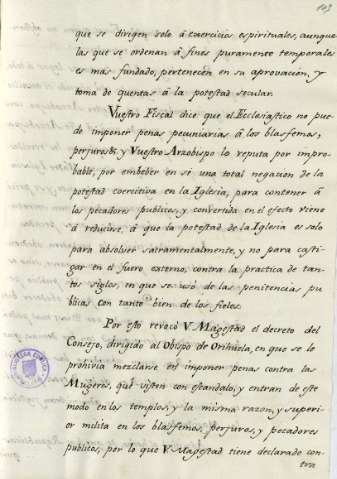 103
que se dirigen solo á exercicios espirituales, aunque
las que se ordenan á fines puramente temporales
es mas fundado, pertenecen en su aprovacion, y
toma de quentas á la potestad secular.
Vuestro Fiscal dice que el Ecclesiastico no pue-
de imponer penas pecuniarias á los blasfemos,
perjuros &. y Vuestro Arzobispo lo reputa por impro-
bable, por embeber en si una total negacion de la
potestad coercitiva en la Iglesia, para contener á
los pecadores publicos, y convertida en el efecto viene
á reducirse, á que la potestad de la Iglesia es solo
para absolver sacramentalmente, y no para casti-
gar en el fuero externo, contra la practica de tan-
tos siglos, en que se usó de las penitencias pu-
blicas con tanto bien de los fieles.
Por esto revocó V. Magestad el decreto del
Consejo, dirigido al Obispo de Orihuela, en que se le
prohivia mezclarse en imponer penas contra las
Mugeres, que visten con escandalo, y entran de este
modo en los templos, y la misma razon, y superi-
or milita en los blasfemos, perjuros, y pecadores
publicos, por lo que V. Magestad tiene declarado con-
tra